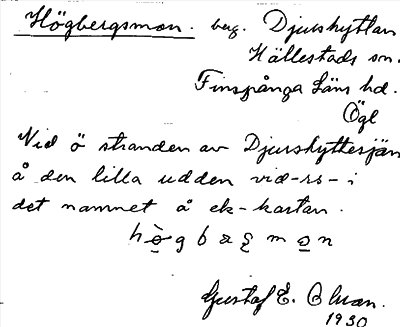 Högbergsmon. beg. Djurshyttan
Hällestads sn.
Finspånga Läns hd.
Ögl
Vid ö stranden av Djurshyttesjön
å den lilla udden vid -rs- i
det namnet å ek-kartan.
Gustaf E. Olman.
1930